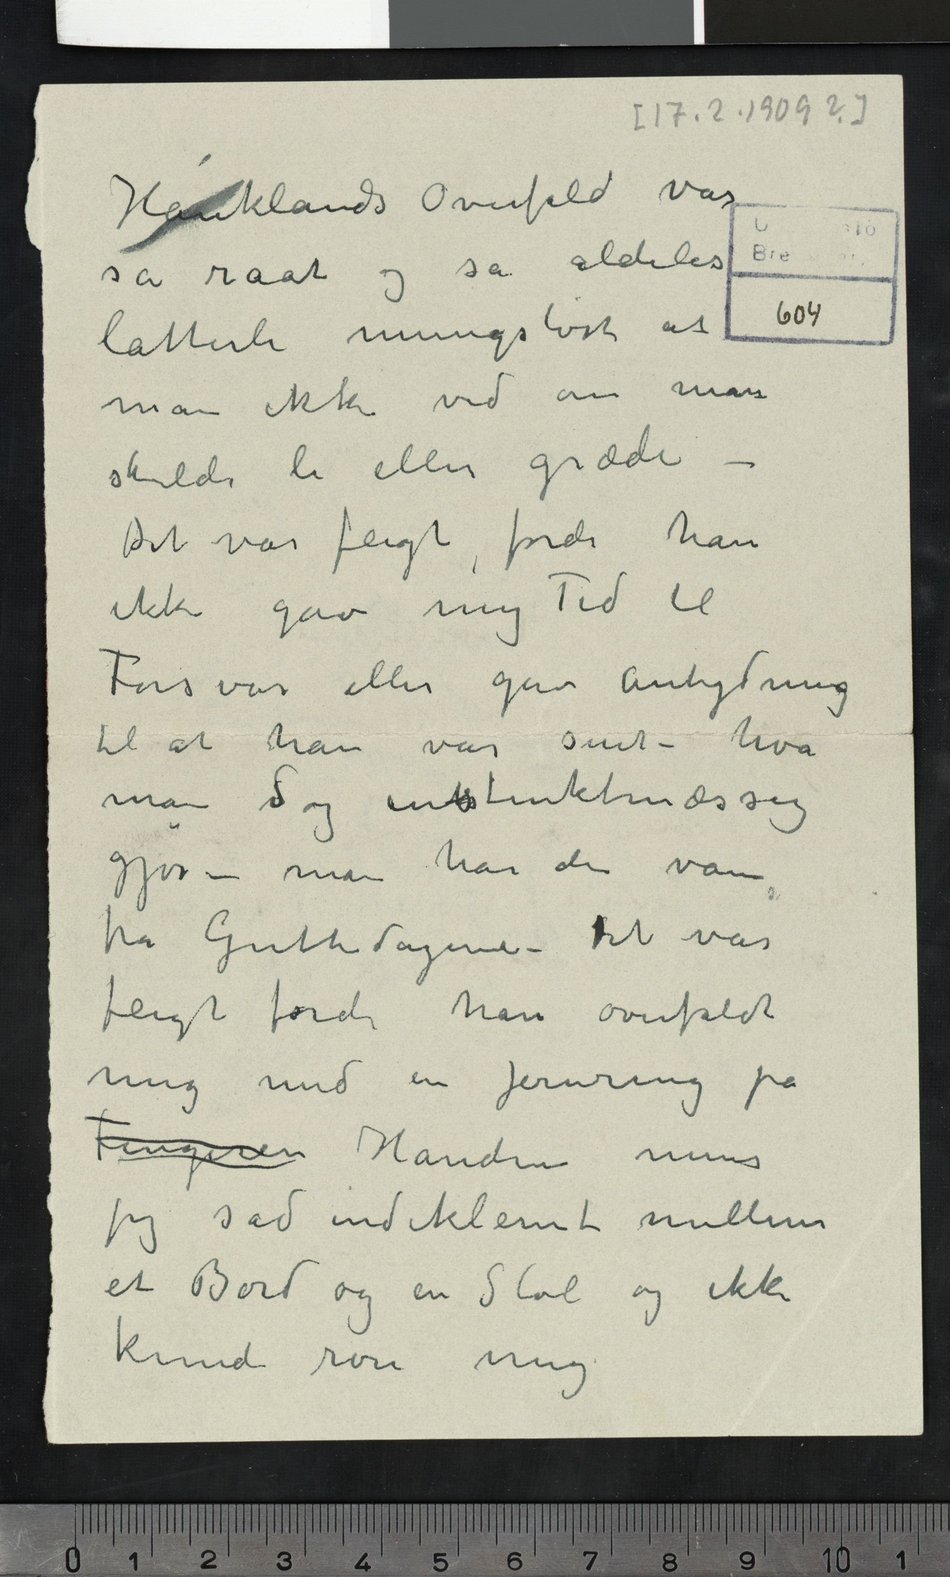 [17.2.1909?]
Hauklands Overfald var
så raat og så aldeles
latterli meningsløst at
man ikke ved om man
skulde le eller græde –
Det var feigt, fordi han
ikke gav mig Tid til
Forsvar eller gav antydning
til at han var sint – hva
man dog instinktmæssig
gjør – man har den vane
fra Guttedagene – Det var
feigt fordi han overfaldt
mig med en Jernring på
Fingeren Handen mens
jeg sad indeklemt mellem
et Bord og en Stol og ikke
kunde røre mig
604
0 1 2 3 4 5 6 7 8 9 10 1